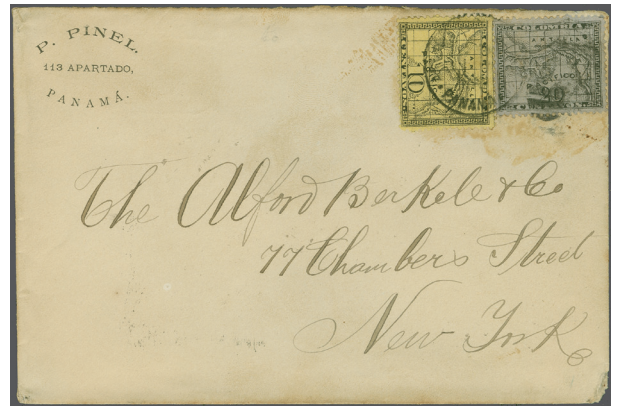 P. PINEL.
113 APARTADO,
PANAMÁ.
10
COLOMBIA
PANAMA
The Alford Berkele & Co
77 Chambers Street
New York